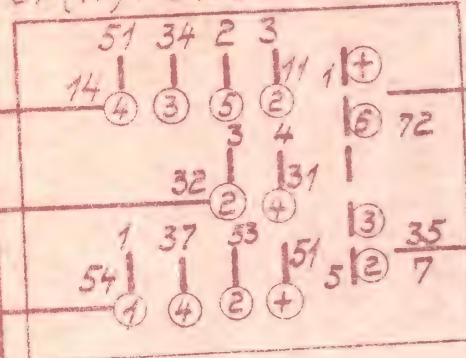 51 34 2 3
14 4 3 5 2 11 1 +
6 72
3 4
32 2 + 31
3
1 37 53 51 35
54 1 4 2 + 5 2 7